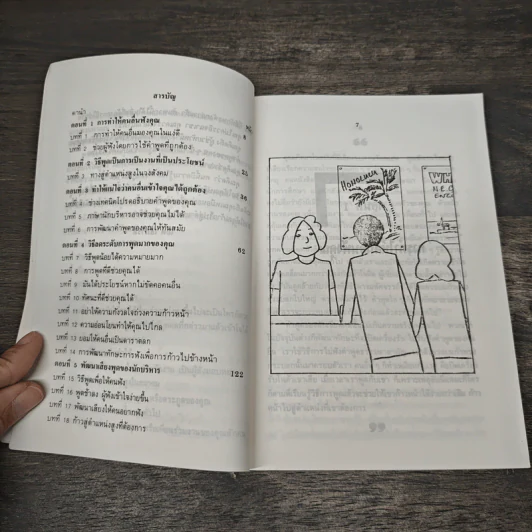 สารบัญ
คำนำ
ตอนที่ 1 การทำให้คนอื่นฟังคุณ
บทที่ 1 การทำให้คนอื่นมองคุณในแง่ดี 6
บทที่ 2 ช่วยผู้ฟังโดยการใช้คำพูดที่ถูกต้อง
ตอนที่ 2 วิธีพูดเป็นการเป็นงานที่เป็นประโยชน์ 25
บทที่ 3 ทางสู่ตำแหน่งสูงในวงสังคม
ตอนที่ 3 ทำให้แน่ใจว่าคนอื่นเข้าใจคุณได้ถูกต้อง 36
บทที่ 4 ช่างเทคนิคโปรดอธิบายคำพูดของคุณ
บทที่ 5 ภาษานักบริหารอาจช่วยคุณไม่ได้
บทที่ 6 การพัฒนาคำพูดของคุณให้ทันสมัย
ตอนที่ 4 วิธีลดระดับการพูดมากของคุณ 62
บทที่ 7 วิธีพูดน้อยได้ความหมายมาก
บทที่ 8 การพูดที่ดีช่วยคุณได้
บทที่ 9 มันได้ประโยชน์หากไม่ขัดคอคนอื่น
บทที่ 10 ทัศนะที่ดีช่วยคุณได้
บทที่ 11 อย่าให้ความกังวลใจถ่วงความก้าวหน้า
บทที่ 12 ความอ่อนโยนทำให้คุณไปไกล
บทที่ 13 ยอมให้คนอื่นเป็นดาราตลก
บทที่ 14 การพัฒนาทักษะการฟังเพื่อการก้าวไปข้างหน้า
ตอนที่ 5 พัฒนาเสียงพูดของนักบริหาร 122
บทที่ 15 วิธีพูดเพื่อให้คนฟัง
บทที่ 16 พูดช้าลง ผู้ฟังเข้าใจง่ายขึ้น
บทที่ 17 พัฒนาเสียงให้คนอยากฟัง
บทที่ 18 ก้าวสู่ตำแหน่งสูงที่ต้องการ
7
HONOLULU